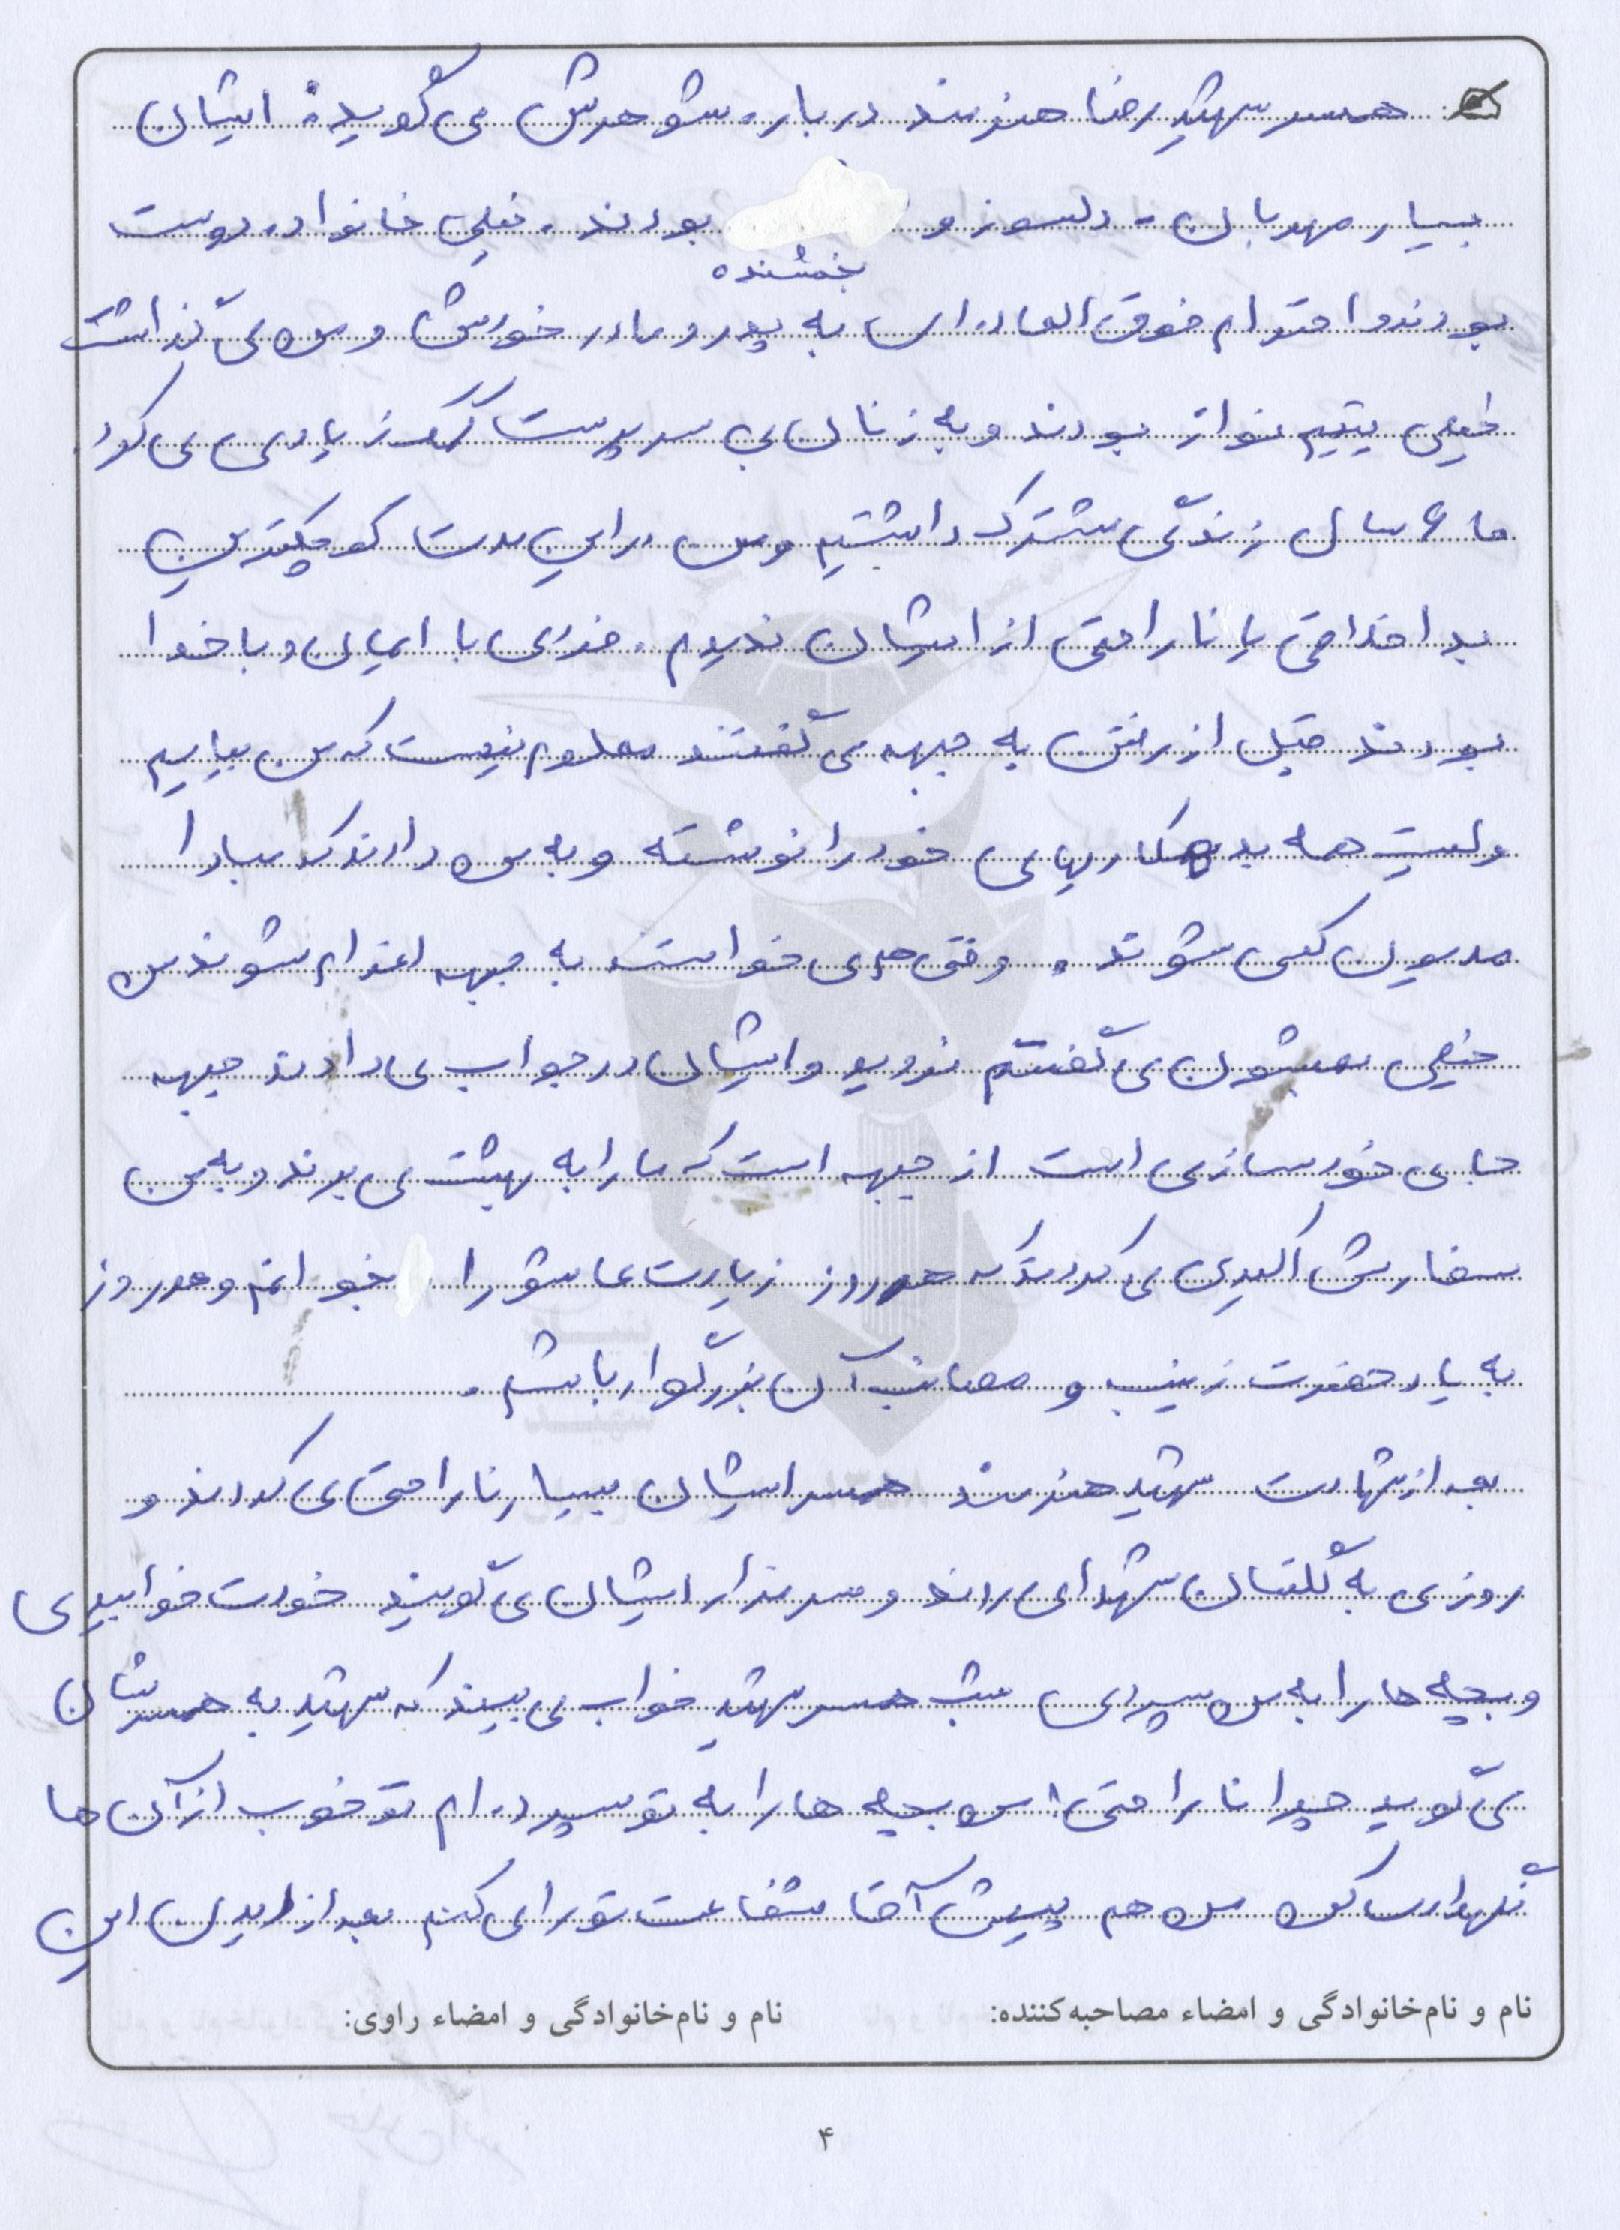 همسر شهید رضا هنرمند درباره شوهرش می گوید: ایشان
بسیار مهربان - دلسوز و بخشنده بودند. خیلی خانواده دوست
بودند و احترام فوق العاده ای به پدر و مادر خودش و من می گذاشت
خیلی یتیم نواز بودند و به زنان بی سرپرست کمک زیادی می کرد.
ما ۶ سال زندگی مشترک داشتیم و من در این مدت کوچکترین
بد اخلاقی یا ناراحتی از ایشان ندیدم. فردی با ایمان و با خدا
بودند قبل از رفتن به جبهه می گفتند معلوم نیست که من بیایم
و لیست همه بدهکاریهای خود را نوشته و به من دادند که مبادا
مدیون کسی شوند. وقتی هم می خواستند به جبهه اعزام شوند من
خیلی بهشون می گفتم نروید و ایشان در جواب می دادند جبهه
جای خودسازی است از جبهه است که ما را به بهشت می برند و به من
سفارش اکیدی می کردند که هر روز زیارت عاشورا بخوانم و هر روز
به یاد حضرت زینب و مصائب آن بزرگوار باشم.
بعد از شهادت شهید هنرمند همسر ایشان بسیار ناراحتی می کردند و
روزی به گلستان شهدا می روند و سر مزار ایشان می گویند خودت خوابیدی
و بچه ها را به من سپردی شب همسر شهید خواب می بیند که شهید به همسرشان
می گوید چرا ناراحتی! من بچه ها را به تو سپرده ام تو خوب از آن ها
نگهداری کن من هم پیش آقا شفاعت تو را می کنم بعد از دیدن این
نام و نام‌خانوادگی و امضاء مصاحبه‌کننده: نام و نام‌خانوادگی و امضاء راوی:
۴